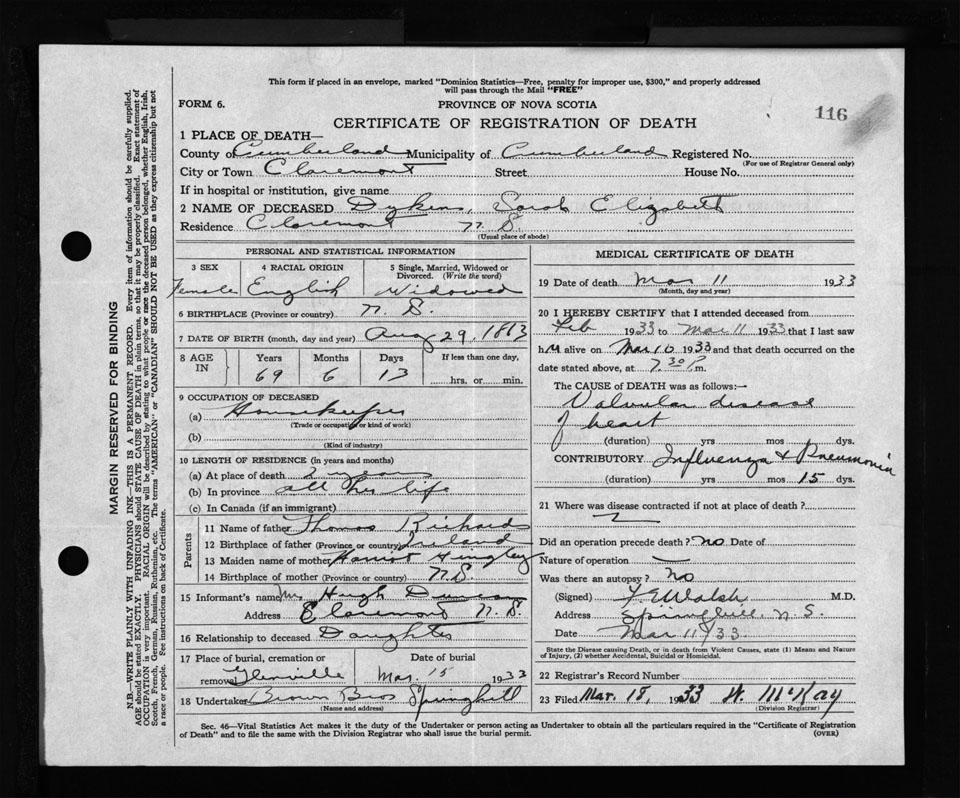 This form if placed in an envelope, marked "Dominion Statistics—Free, penalty for improper use, $300," and properly addressed
will pass through the Mail "FREE"
FORM 6.
PROVINCE OF NOVA SCOTIA
116
CERTIFICATE OF REGISTRATION OF DEATH
1 PLACE OF DEATH—
County of Cumberland Municipality of Cumberland Registered No.
(For use of Registrar General only)
City or Town Claremont Street House No.
If in hospital or institution, give name
2 NAME OF DECEASED Dykens, Sarah Elizabeth
Residence Claremont N. S.
(Usual place of abode)
PERSONAL AND STATISTICAL INFORMATION
3 SEX 4 RACIAL ORIGIN 5 Single, Married, Widowed or
Divorced. (Write the word)
Female English Widowed
6 BIRTHPLACE (Province or country) N. S.
7 DATE OF BIRTH (month, day and year) Aug 29, 1863
8 AGE IN Years Months Days If less than one day,
69 6 13 hrs. or min.
9 OCCUPATION OF DECEASED
(a) Housekeeper
(Trade or occupation or kind of work)
(b)
(Kind of industry)
10 LENGTH OF RESIDENCE (in years and months)
(a) At place of death 2 years
(b) In province all her life
(c) In Canada (if an immigrant)
Parents
11 Name of father Thomas Richard
12 Birthplace of father (Province or country) Ireland
13 Maiden name of mother Harriet
14 Birthplace of mother (Province or country) N.S.
15 Informant's name Mrs. Hugh Duncan
Address Claremont N. S.
16 Relationship to deceased Daughter
17 Place of burial, cremation or removal Glenville
Date of burial Mar. 15 1933
18 Undertaker Brown Bros Springhill
(Name and address)
MEDICAL CERTIFICATE OF DEATH
19 Date of death Mar 11 1933
(Month, day and year)
20 I HEREBY CERTIFY that I attended deceased from
Feb 1933 to Mar 11 1933 that I last saw
her alive on Mar 10 1933 and that death occurred on the
date stated above, at 7.30 P m.
The CAUSE of DEATH was as follows:—
Valvular disease
of heart
(duration) yrs mos dys.
CONTRIBUTORY Influenza & Pneumonia
(duration) yrs mos 15 dys.
21 Where was disease contracted if not at place of death?
Did an operation precede death? no Date of
Nature of operation
Was there an autopsy? no
(Signed) F. E. Walsh M.D.
Address Springhill, N. S.
Date Mar 11/33.
State the Disease causing Death, or in death from Violent Causes, state (1) Means and Nature
of Injury, (2) whether Accidental, Suicidal or Homicidal.
22 Registrar's Record Number
23 Filed Mar. 18, 1933 W. McKay
(Division Registrar)
Sec. 46—Vital Statistics Act makes it the duty of the Undertaker or person acting as Undertaker to obtain all the particulars required in the "Certificate of Registration
of Death" and to file the same with the Division Registrar who shall issue the burial permit.
(OVER)
MARGIN RESERVED FOR BINDING
N.B.—WRITE PLAINLY WITH UNFADING INK—THIS IS A PERMANENT RECORD. Every item of information should be carefully supplied.
AGE should be stated EXACTLY. PHYSICIANS should STATE CAUSE OF DEATH in plain terms, so that it may be properly classified. Exact statement of
OCCUPATION is very important. RACIAL ORIGIN will be described by stating to what people or race the deceased person belonged, whether English, Irish,
Scotch, French, German, Russian, Ruthenian, etc. The terms "AMERICAN" or "CANADIAN" SHOULD NOT BE USED as they express citizenship but not
a race or people. See instructions on back of Certificate.